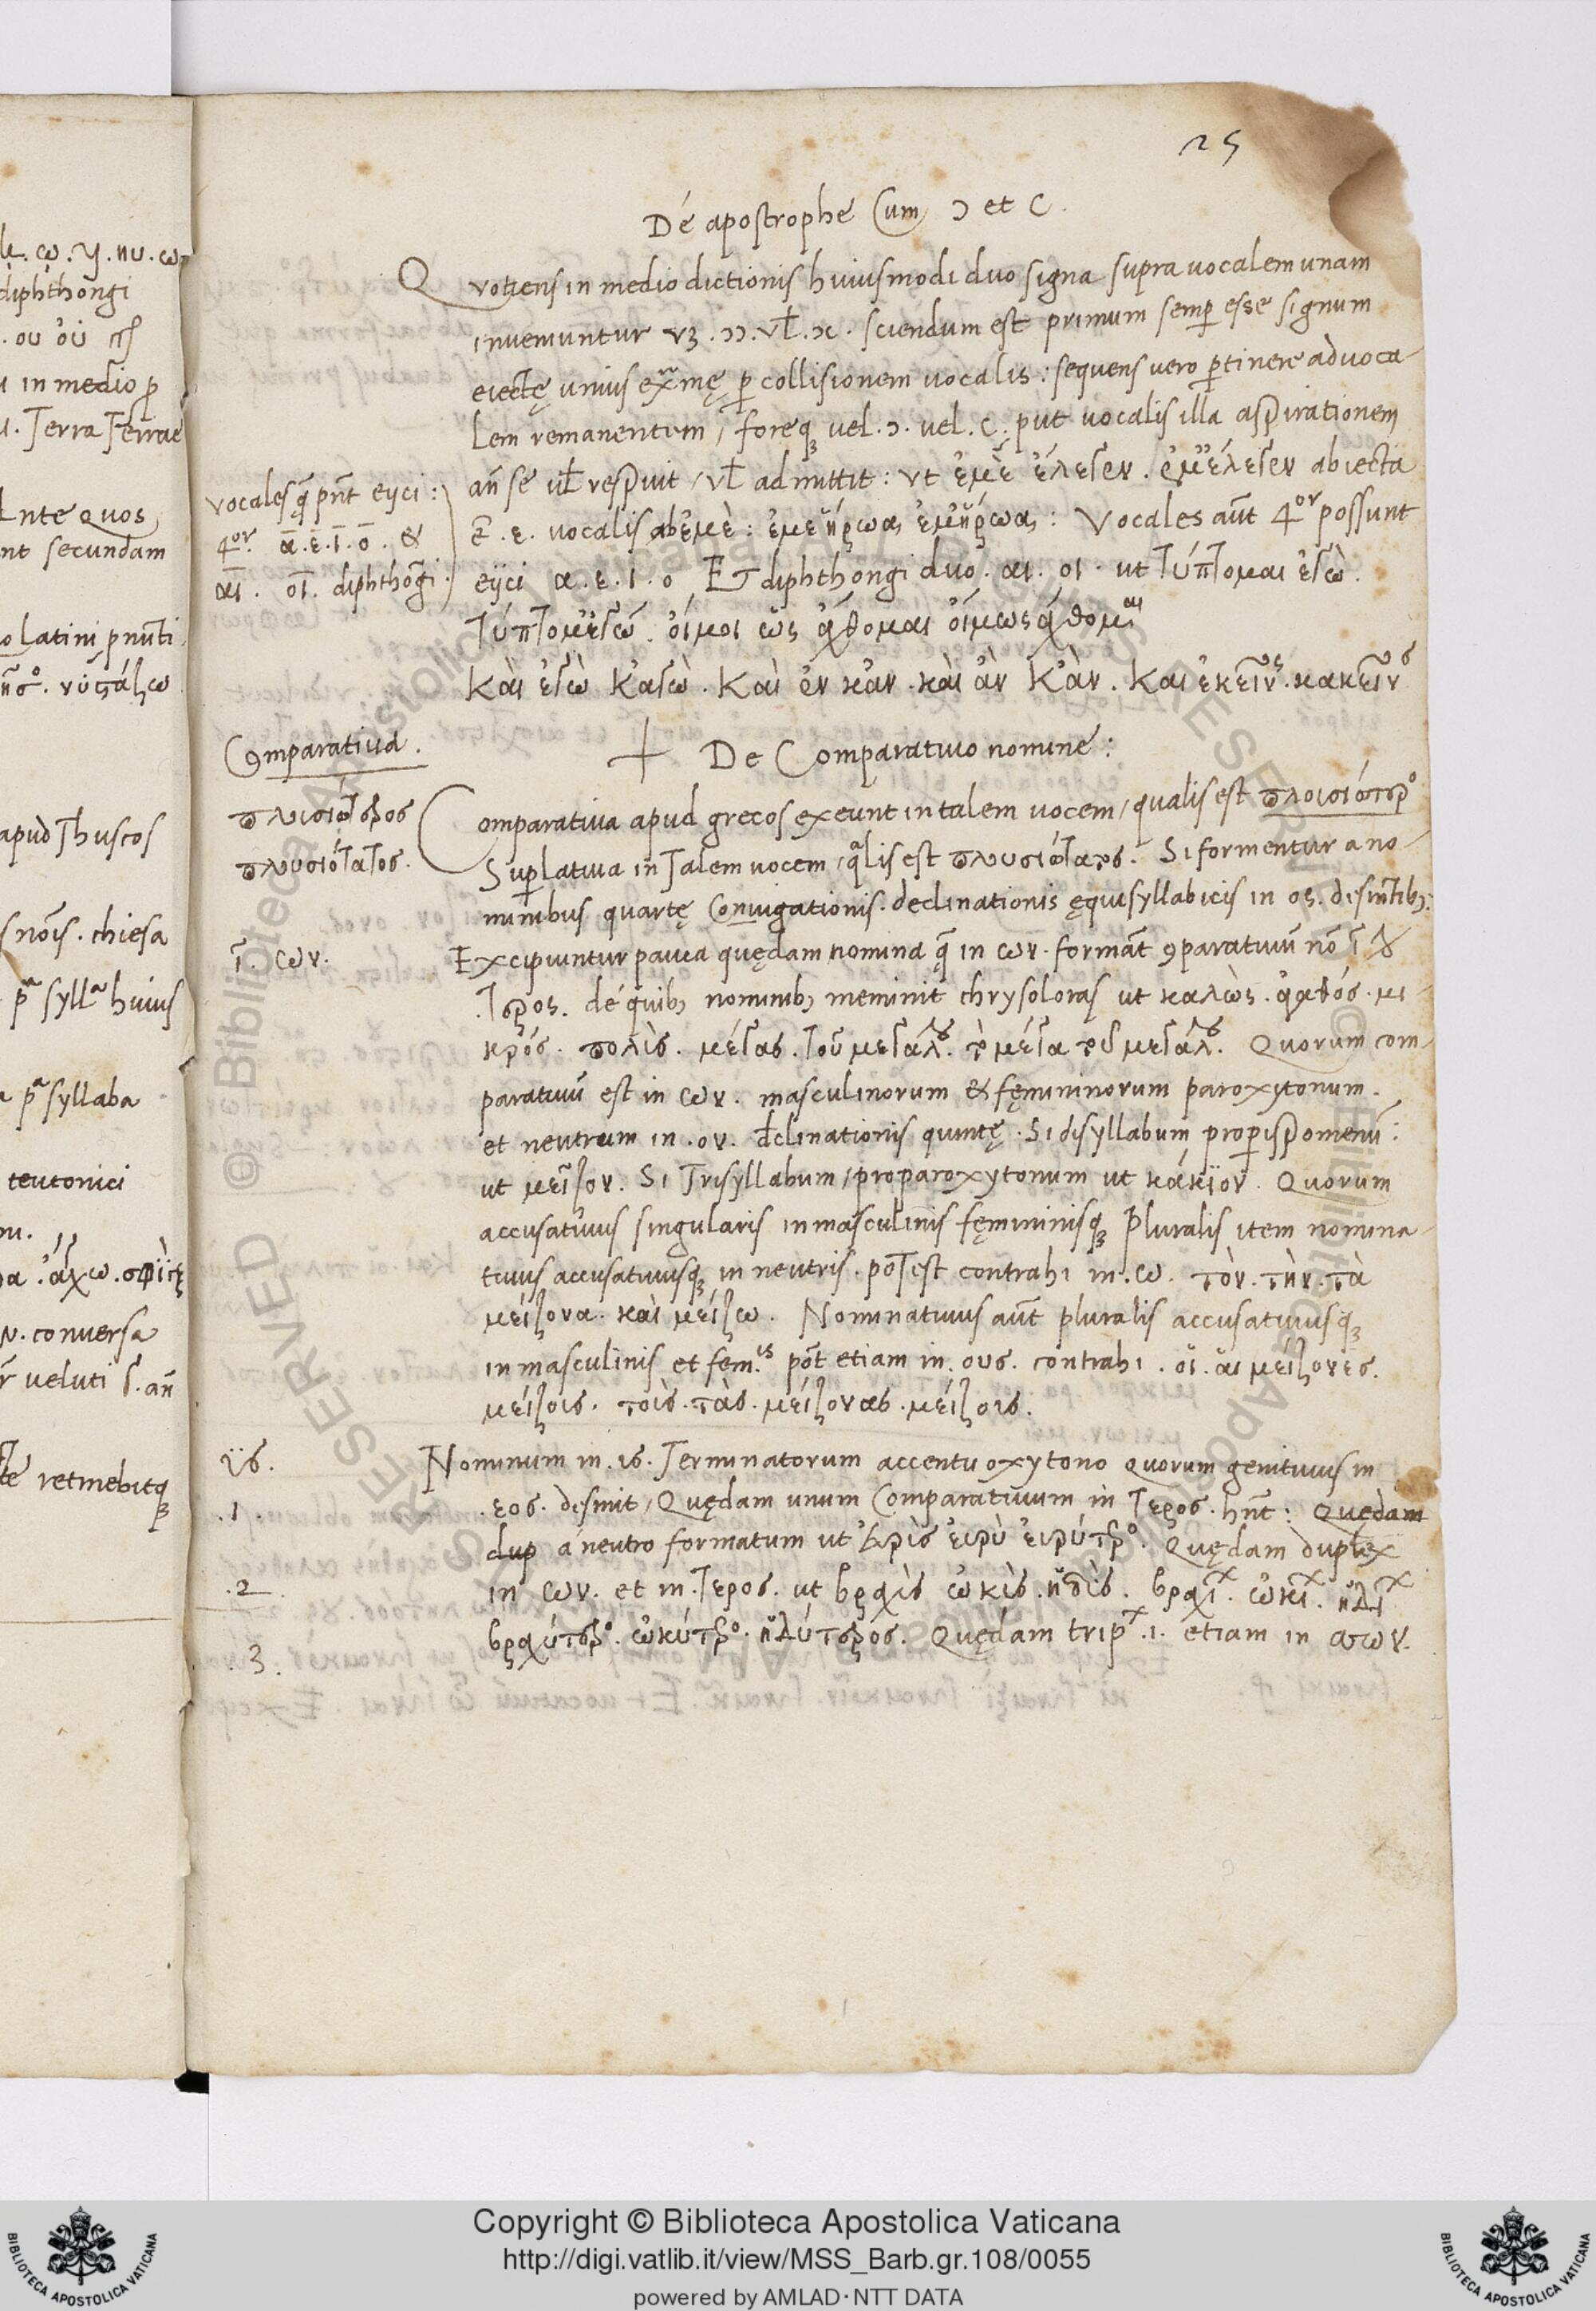 25
De apostrophe Cum ɔ et c.
Quotiens in medio dictionis huiusmodi duo signa supra uocalem unam
inueniuntur vʒ .ɔɔ. vł .ɔc. sciendum est primum semp̲ esse signum
eiectę unius p̲ collisionem uocalis: sequens uero p̲tinere ad uoca-
Lem remanentem, foreqʒ uel .ɔ. uel .c. put uocalis illa asp̲irationem
an̄ se uł resp̲uit, vł admittit: vt ἐμὲ ἔλεγεν. ἐμ᾽ἔλεγεν abiecta
.ε. uocalis ab ἐμὲ: Vocales aut̄ 4or possunt
eijci α.ε.ι.ο Et diphthongi duo. αι. οι. ut τύπτομαι ἐγὼ.
τύπτομ᾽ἐγώ. οἴμοι ὡς ἄχθομαι οἴμ᾽ως ἄχθομαι
Καὶ ἐγὼ κἀγὼ. Καὶ ἐν κἀν. καὶ ἀν κἀν. Και ἐκεῖνος. κακεῖνος
vocales q̄ pn̄t eijci:
4or. ᾱ.ε̄.ῑ.ο̄. &
αῑ. οῑ. diphthōgi.
+ De Comparatiuo nomine:
Comparatiua.
πλουσιώτερος
πλουσιότατος.
Comparatiua apud grecos exeunt in talem uocem, qualis est πλοισιότερο
Sup̲latiua in Talem uocem, qalis est πλουσιότατος. Si formentur a no-
minibus quartę Coniugationis. declinationis ęquisyllabicis in os. desinētibꝫ:
ῑ. ων.
Excipiuntur pauca quędam nomina q̄ in ων. formāt ꝯparatiuū nō ī
.τερος. de quibꝫ nominibꝫ meminit chrysoloras ut καλὼς. ἀγαθός. μι-
κρός. πολὶς. μέγας. τοῦ μεγάλου. τὸ μέγα τοῦ μεγάλου. Quorum com-
paratiuū est in ων. masculinorum & fęmininorum paroxytonum.
et neutrum in .ον. d̄clinationis quintę. Si disyllabum prop̲isp̲omenū:
ut μεῖζον. Si Trisyllabum, proparoxytonum ut κάκϊον. Quorum
accusatiuus singularis in masculinis fęmininisqʒ pluralis item nomina-
tiuus accusatiuusqʒ in neutris. potest contrahi in .ω. τὸν. τὴν. τὰ
μείζονα. καὶ μείζω. Nominatiuus aut̄ pluralis accusatiuusqʒ
in masculinis et fem.is pōt etiam in .ους. contrahi. οἵ. ἅι μείζονες.
μείζοις. τοὶς. τὰς. μείζονας. μείζοις.
ϋς.
Nominum in .ις. Terminatorum accentu oxytono quorum genitiuus in
.1
.εος. desinit, Quędam unum Comparatiuum in τερος. hn̄t: Quędam
dup a neutro formatum ut ἐυρὶς ἐυρὺ ἐυρύτερο. Quędam duplex
.2.
in ων. et in .τερος. ut βραχὶς ὠκὶς. ἡδὶς.
βραχύτερο. ὠκύτερο. ἡδύτερος. Quędam trip .i. etiam in σσων.
.3.
Copyright © Biblioteca Apostolica Vaticana
http://digi.vatlib.it/view/MSS_Barb.gr.108/0055
powered by AMLAD·NTT DATA